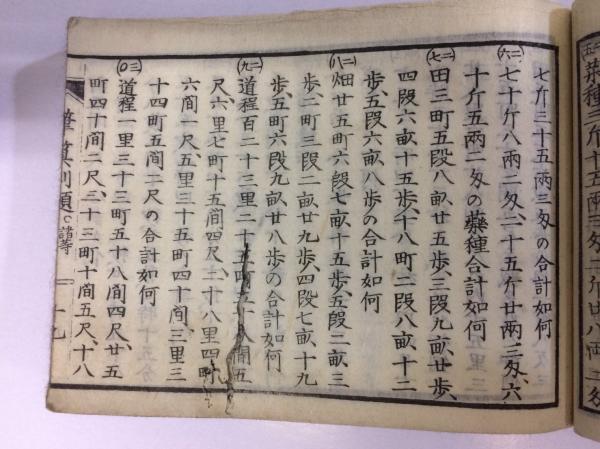 菜種三斤十五兩三匁二斤廿八兩二匁
七斤三十五兩三匁の合計如何
(二六)七十斤八兩二匁、二十五斤廿兩三匁、六
十斤五兩二匁の藥種合計如何
(二七)田三町五段八畝廿五歩、三段九畝廿歩、
四段六畝十五歩、十八町二段八畝十二
歩、五段六畝八歩の合計如何
(二八)畑廿五町六段七畝十五歩、五段二畝三
歩、二町三段二畝廿九歩、四段七畝十九
歩、五町六段九畝廿八歩の合計如何
(二九)道程百二十三里二十五町 十八間五
尺、六里七町十五間四尺、二十八里四町
六間一尺、五里三十五町四十間、三里三
十四町五間二尺の合計如何
(三〇)道程一里三十三町五十八間四尺、廿五
町四十間二尺、三十三町十間五尺、十八
筆算 諸等 十九